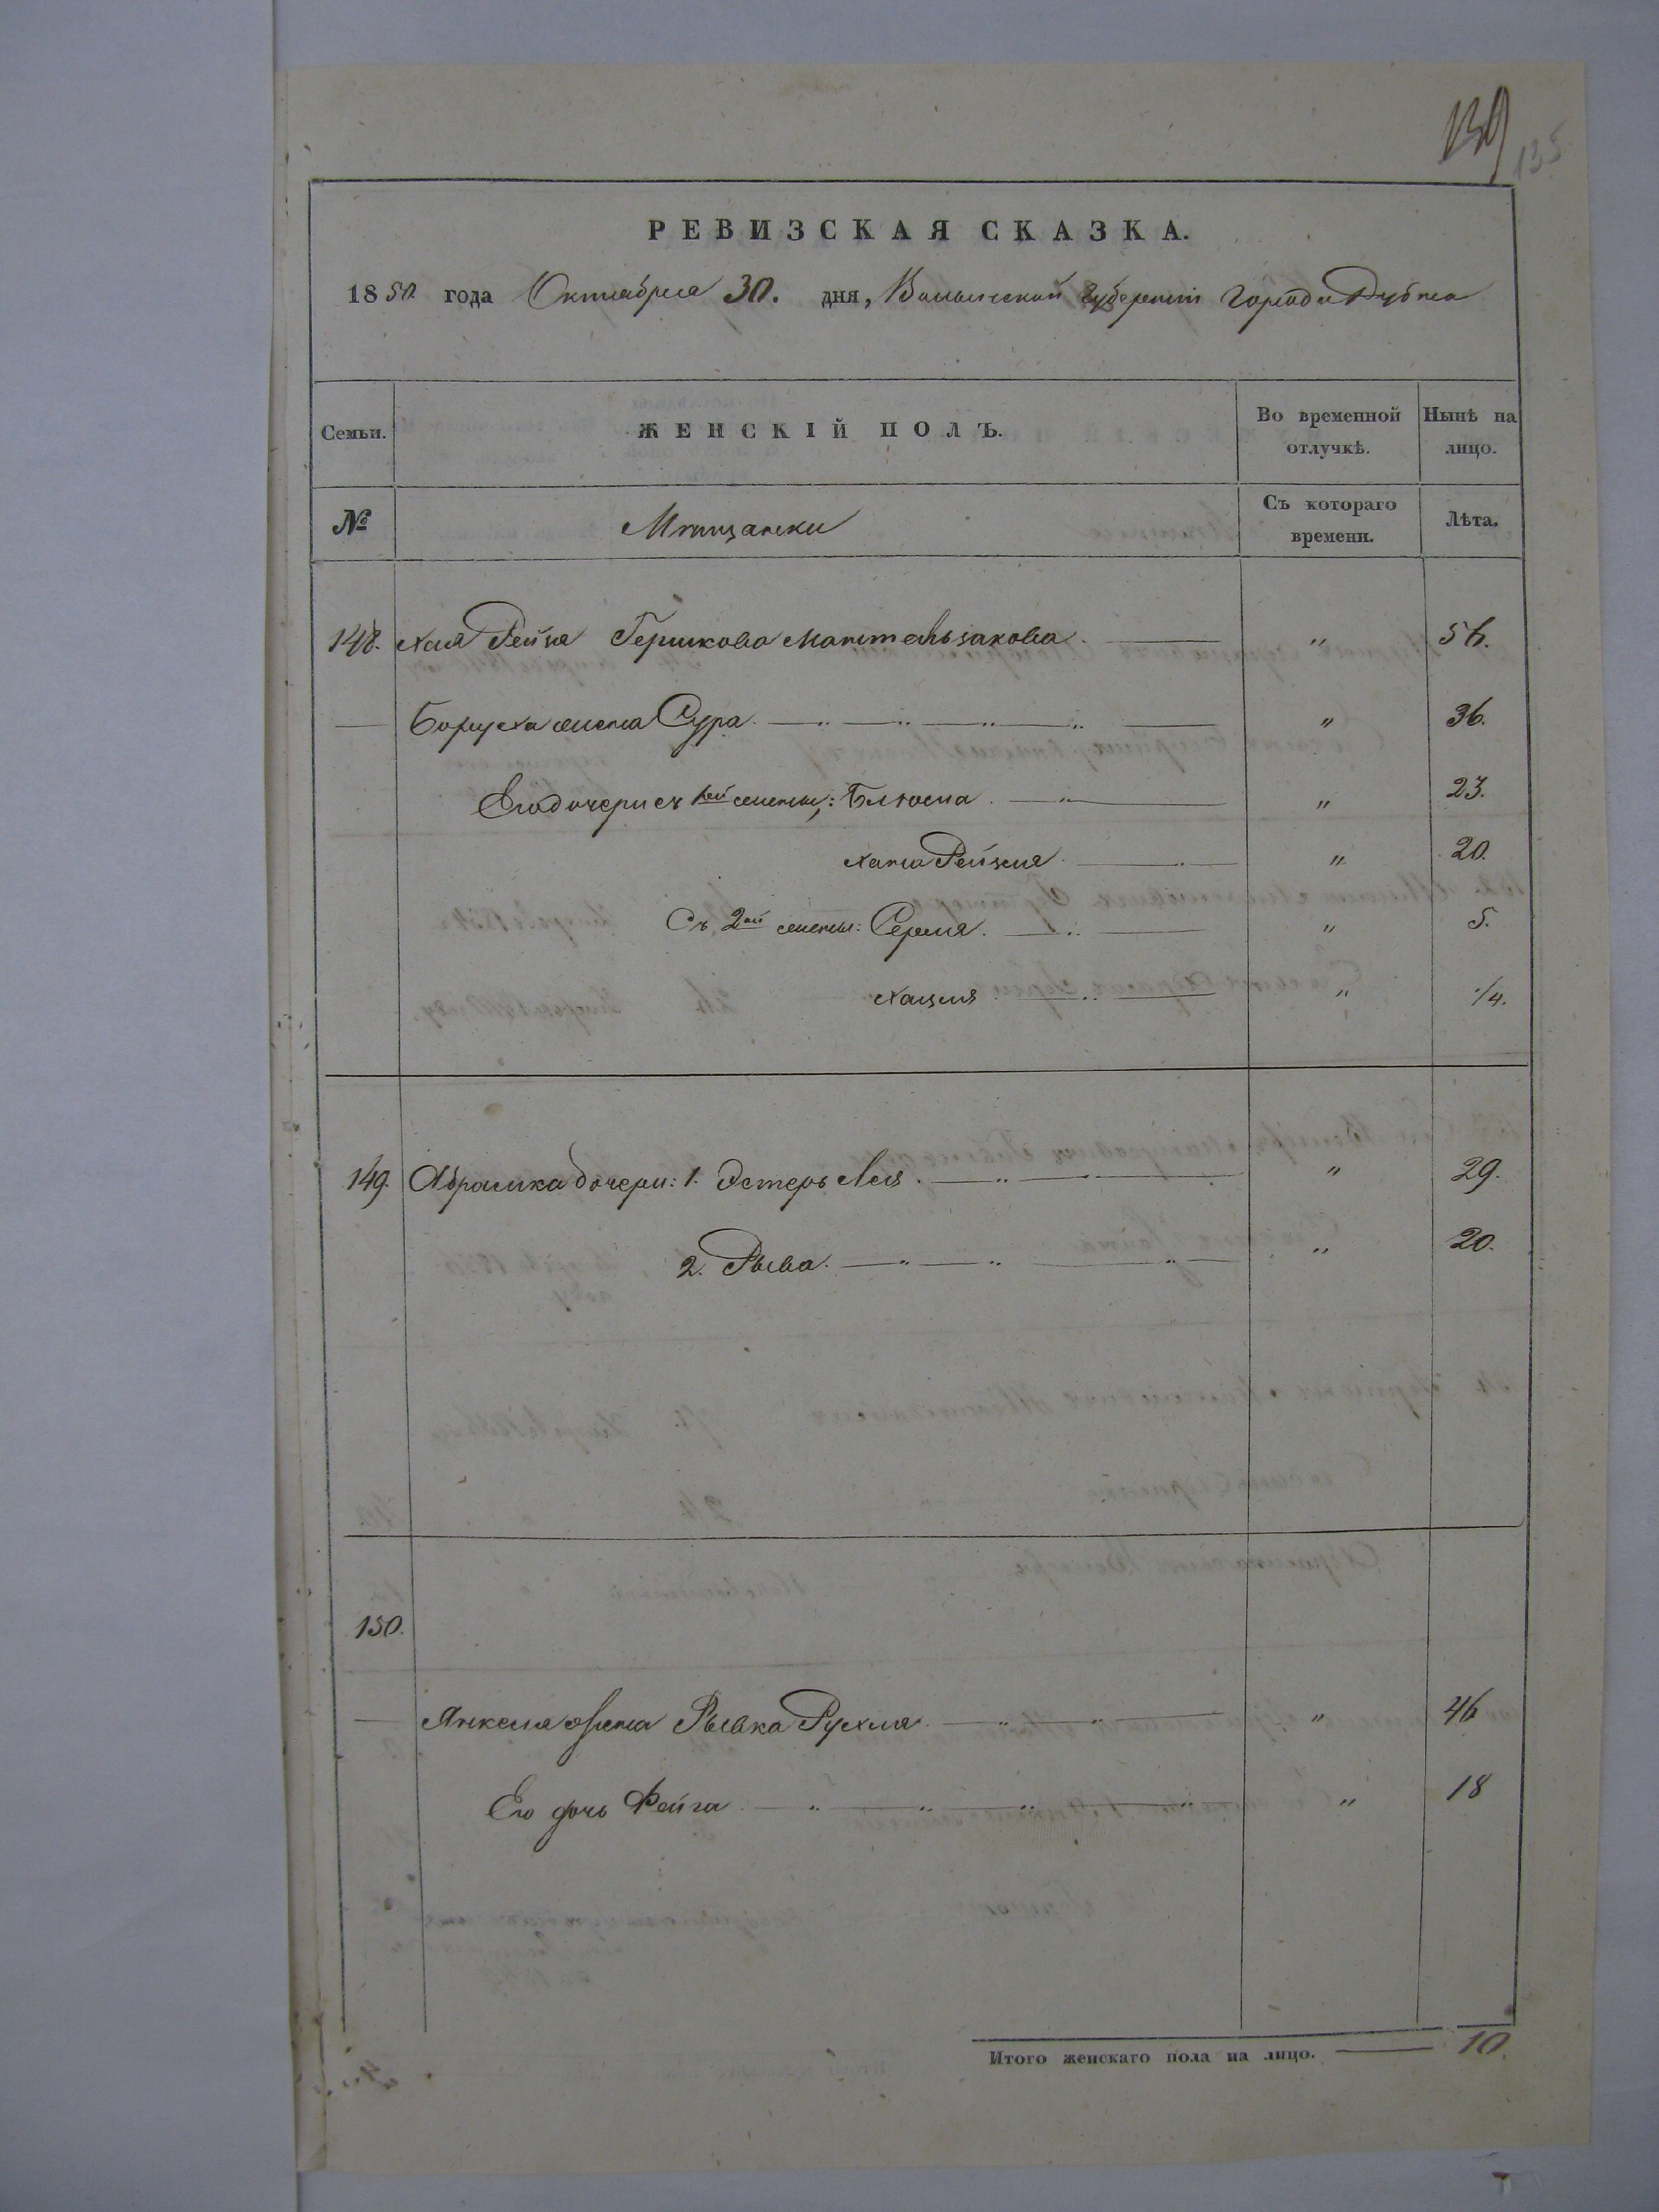 139
135
РЕВИЗСКАЯ СКАЗКА.
1850 года Октября 30. дня, Волынской губернии города Дубна
Семьи.
ЖЕНСКІЙ ПОЛЪ.
Во временной отлучкѣ.
Нынѣ на лицо.
№
Мѣщанки
Съ котораго времени.
Лѣта.
148. Хая Рейзя Гершкова " 56.
— Боруха жена Сура " 36.
Его дочери съ 1ой жены: Блюма " 23.
Хана Рейзля " 20.
Съ 2ой жены: Серля " 5.
Хацля " 1/4.
149. Абрамка дочери: 1. Эстеръ Лея " 29.
2. Рыва " 20.
150.
— Янкеля жена Рывка Рухля " 46
Его дочь Фейга " 18
Итого женскаго пола на лицо. 10.